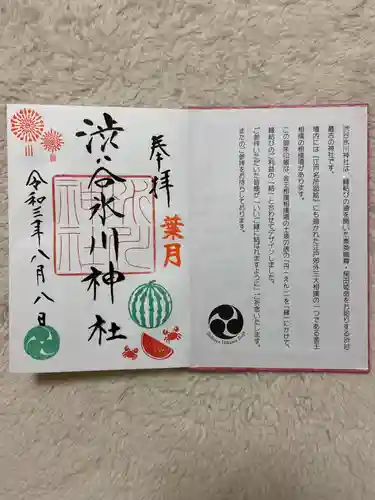 奉拝
葉月
渋谷氷川神社
令和三年八月八日
渋谷氷川神社は、縁結びの道を開いた素盞鳴尊・稲田姫命をお祀りする渋谷
最古の神社です。
境内には『江戸名所図絵』にも描かれた江戸郊外三大相撲の一つである金王
相撲の相撲場があります。
この御朱印帳は、金王相撲相撲場の土俵の形の「円(えん)」を「縁」にかけて、
縁結びのご利益の「結」と合わせてデザインしました。
ご参拝いただいた皆様が「いいご縁に結ばれますように」とお念いします。
またのご参拝をお待ちしております。
Shibuya Hikawa Jinja